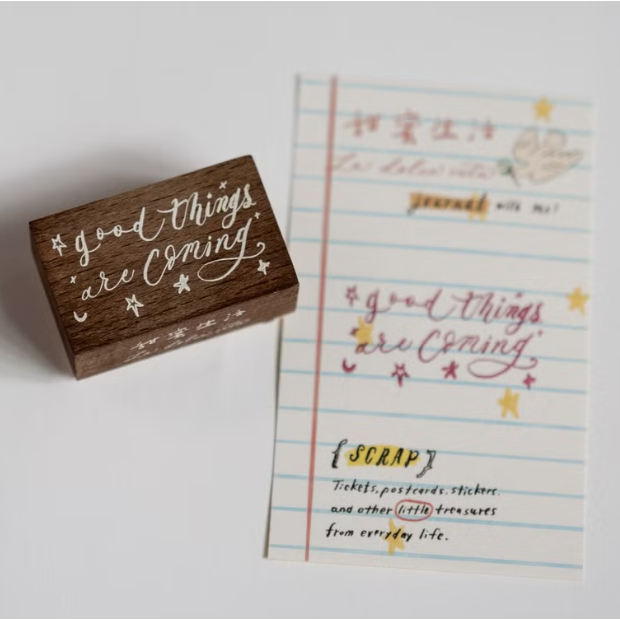 good things
are Coming
甜蜜生活
La dolce vita
甜蜜生活
La dolce vita
journal with me!
good things
are Coming
{SCRAP}
Tickets, postcards, stickers.
and other little treasures
from everyday life.